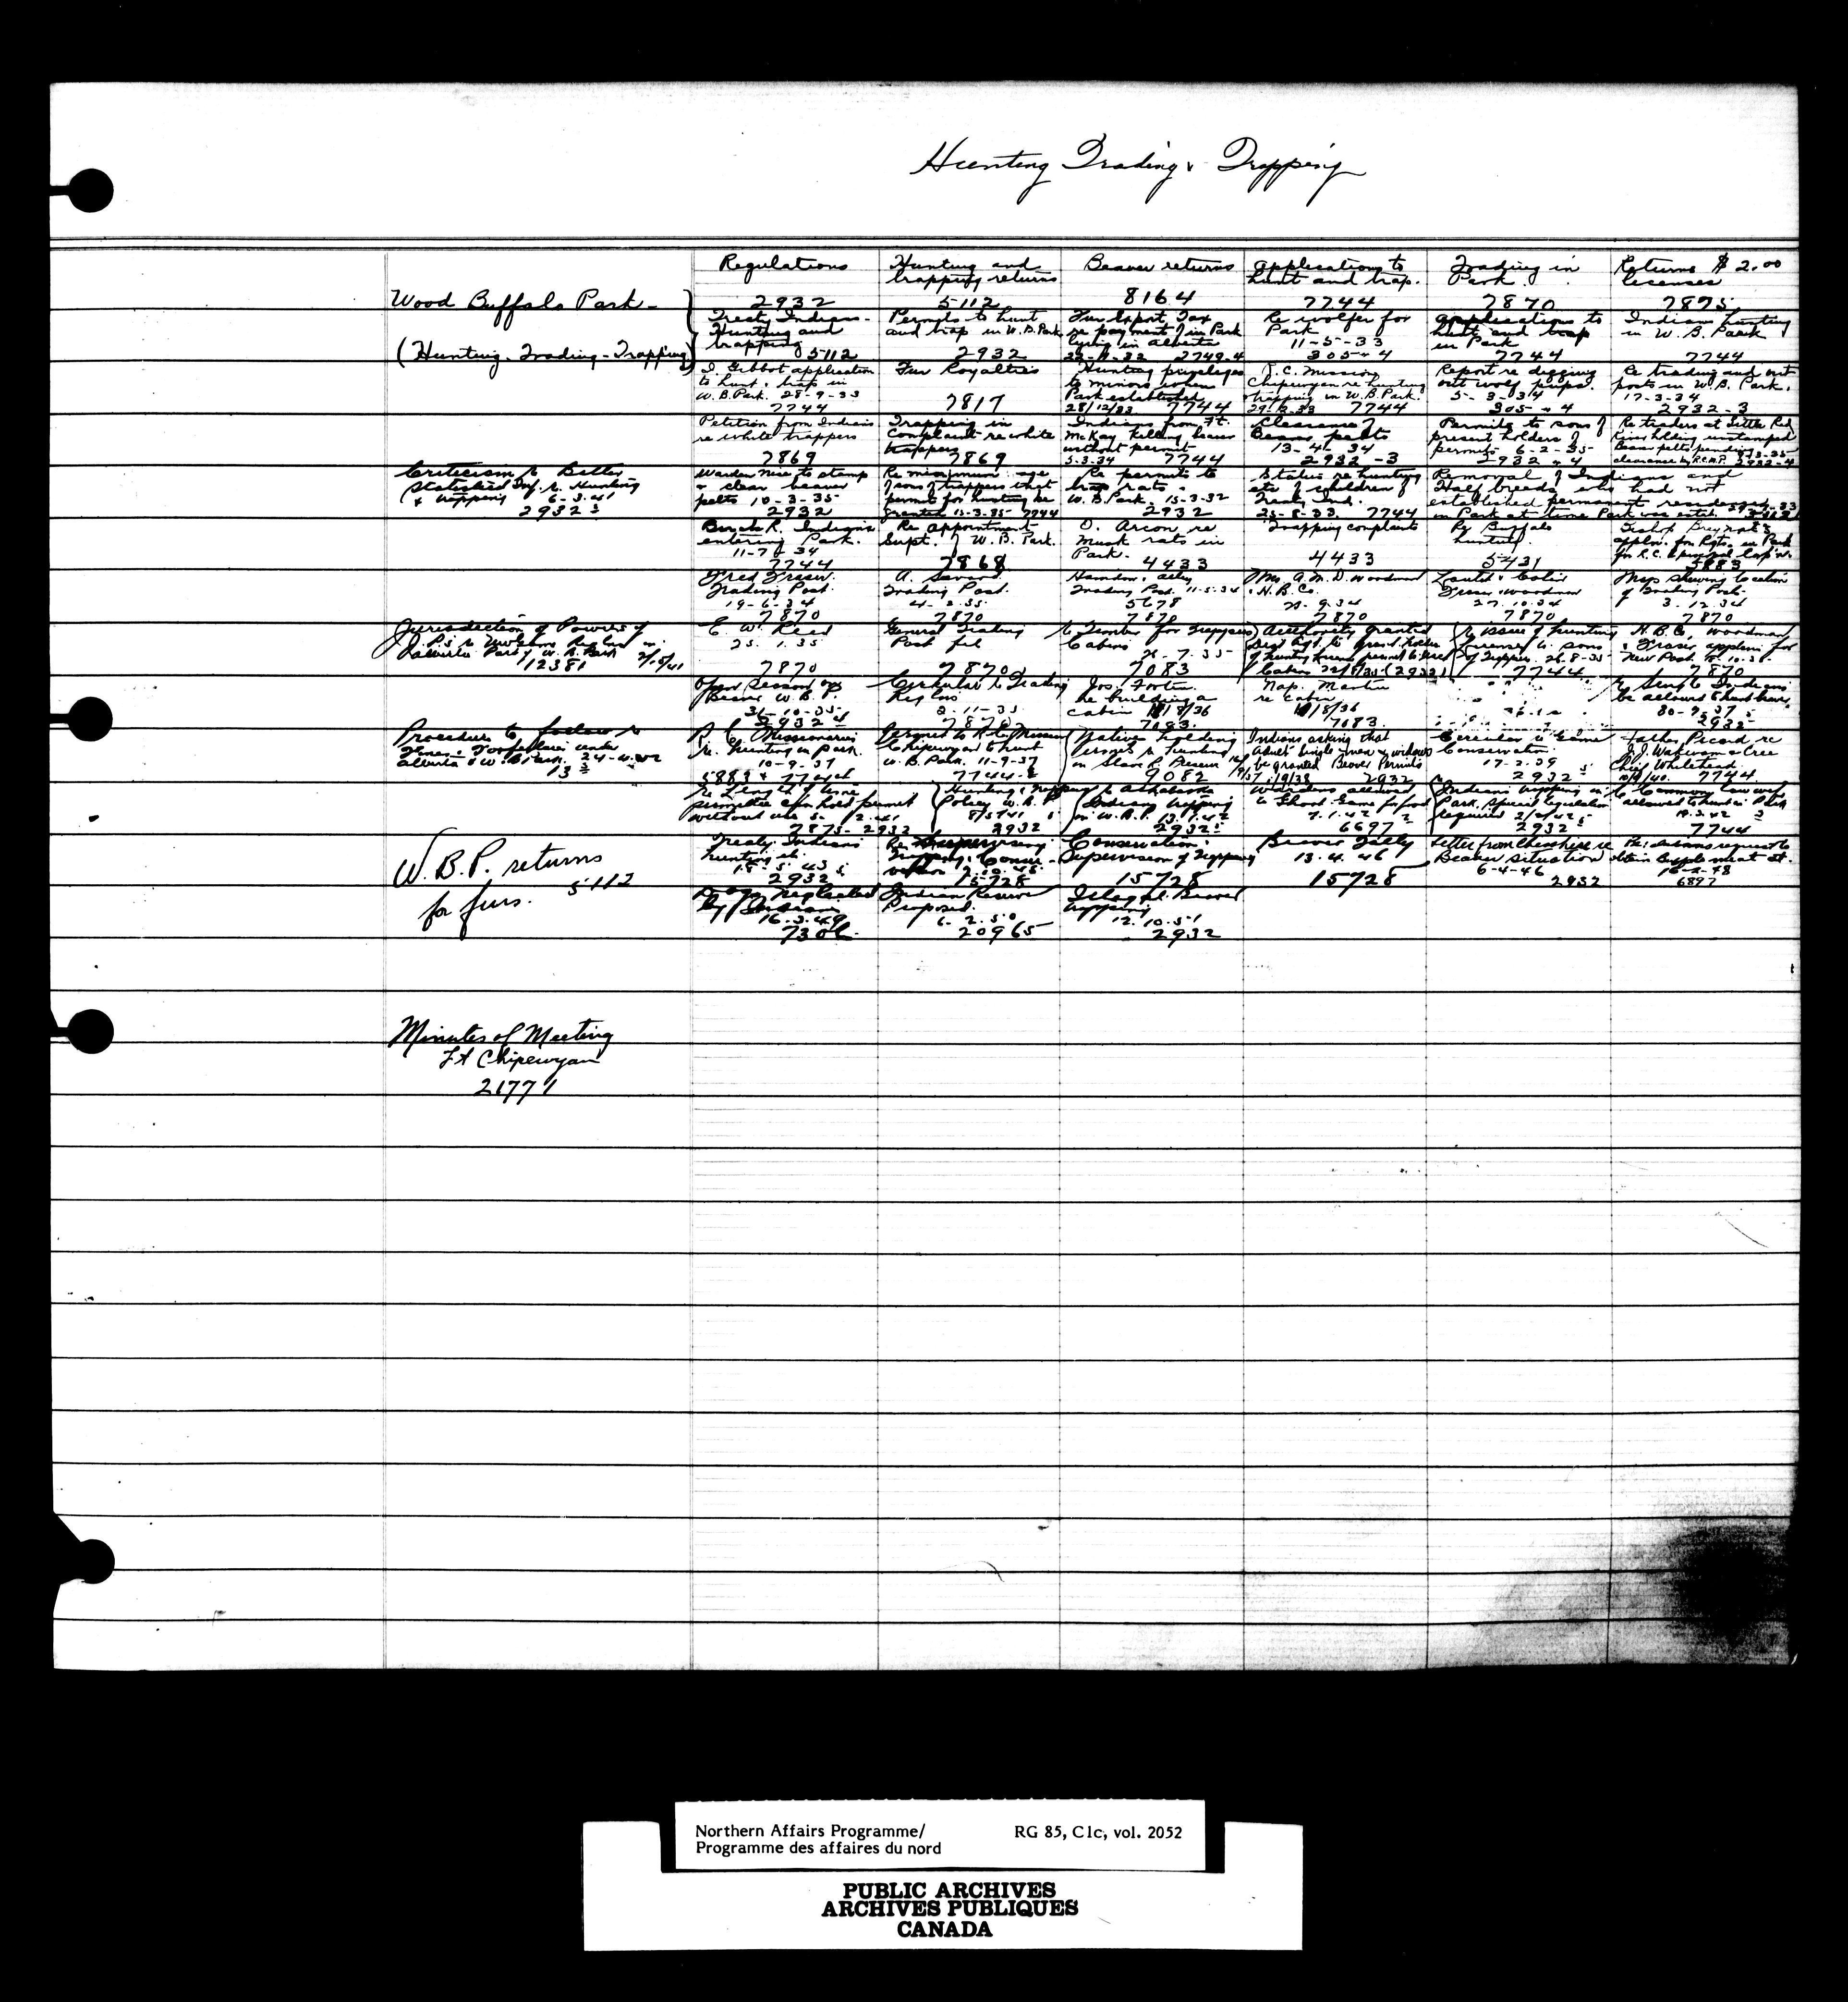 Hunting Trading & Trapping
Regulations
2932
Hunting and
trapping returns
5112
Beaver returns
8164
Applications to
hunt and trap.
7744
Trading in
Park.
7870
Returns $2.00
licenses
7875
Wood Buffalo Park -
(Hunting - Trading - Trapping)
Treaty Indians -
Hunting and
trapping 5112
Permits to hunt
and trap in W.B. Park
2932
Fur Export Tax
re payment of in Park
lying in Alberta
22-11-32 2749-4
Re wolfer for
Park
11-5-33
305-4
Applications to
hunt and trap
in Park
7744
Indians hunting
in W.B. Park
7744
I. Gibbot application
to hunt & trap in
W.B. Park. 28-9-33
7744
Fur Royalties
7817
Hunting privileges
to minors when
Park established
28/12/33 7744
R.C. Mission
Chipewyan re hunting
& trapping in W.B. Park.
29-12-33 7744
Report re digging
out wolf pups.
5-3-34
305-4
Re trading and out
posts in W.B. Park.
17-3-34
2932-3
Petition from Indians
re white trappers
7869
Trapping in
Complaint re white
trappers
7869
Indians from Ft.
McKay killing beaver
without permit
5-3-34 7744
Clearance of
Beaver pelts
13-4-34
2932-3
Permits to sons of
present holders of
permits 6-2-35
2932-4
Re traders at Little Red
River holding unstamped
Beaver pelts pending
clearance by R.C.M.P. 2932-4
Criticism & Better
Statistical Inf. re Hunting
& Trapping 6-3-41
2932
Warden Nice to stamp
& clear beaver
pelts 10-3-35
2932
Re minimum age
of sons of trappers that
permits for hunting be
granted 13-3-35 7744
Re permits to
trap rats.
W.B. Park. 15-3-32
2932
Status re hunting
etc of children of
Treaty Ind.
25-8-33 7744
Removal of Indians and
Half breeds who had not
established permanent residence
in Park at time Park was estab.
Birch R. Indians
entering Park.
11-7-34
7744
Re appointment
Supt. of W.B. Park.
7868
O. Arcon re
Musk rats in
Park.
4433
Trapping complaints
4433
Ry Buffalo
hunting.
5431
Bishop Breynat's
applcn. for Rgts. in Park
for R.C. Episcopal Corp'n.
5883
Fred Fraser.
Trading Post.
19-6-34
7870
A. Savard
Trading Post.
4-2-35
7870
Hamdon & Alley
Trading Post. 11-5-34
5678
7870
Mrs. A.M.D. Woodman
H.B. Co.
20-9-34
7870
Colin
Fraser & Woodman
27.10.34
7870
Map showing location
of Trading Post.
3.12.34
7870
Jurisdiction of Powers of
J.P.'s to
Alberta Part of W.B. Park
12381
E. W. Reed
25.1.35
7870
General Trading
Post file
7870
re Timber for Trappers
Cabins
2-7-35
7083
Authority granted
2932
re issue of hunting
licenses to sons
of Trappers. 26-8-35
7744
H.B.Co, Woodman
& Fraser applcn for
New Post
7870
Open Season on
Beaver W.B.P.
31-10-35
2932
Circular to Trading
2-11-35
7870
Jos. Fortin
re building a
cabin 11/8/36
7083
Nap. Martin
re cabin
11/8/36
7083
Indians
be allowed to hunt beaver
30-9-37
2932
Procedure to follow re
Alberta & W.B. Park. 24-4-42
13
R.C. Missionaries
re Hunting in Park.
10-9-37
5883 & 7744
Permit to R.C. Mission
Chipewyan to hunt
W.B. Park. 11-9-37
7744
Native holding
on Slave R. Preserve
9082
Indians asking that
adult single men & widows
be granted Beaver Permits
2932
Circular re Game
Conservation
17-2-39
2932
Father Picard re
J.J. Wakwan & Cree
Chief Whitehead
7744
re Length of time
permittee can hold permit
without use
7875-2932
Hunting & Trapping
Policy W.B.P.
2932
re Athabaska
Indians trapping
in W.B.P. 13.1.42
2932
Wardens allowed
to Shoot Game for food
7.1.42
6697
Indians trapping in
Park. Special legislation
required
2932
re Common law wife
allowed to hunt in Park
7744
W.B.P. returns
for furs. 5112
Treaty Indians
hunting
18-5-45
2932
Re Supervising
Trapping & Conser-
vation 2.10.45
15728
Conservation &
Supervision of Trapping
15728
Beaver Tally
13.4.46
15728
Letter from Cheshire re
Beaver situation
6-4-46
2932
Re: Indians request to
obtain Buffalo meat
6897
Dogs Neglected
by Indians
16.3.49
Indian Reserve
Proposed.
6.2.50
20965
Illegal Beaver
trapping
12.10.51
2932
Minutes of Meeting
Ft Chipewyan
21771
Northern Affairs Programme/
Programme des affaires du nord
RG 85, C1c, vol. 2052
PUBLIC ARCHIVES
ARCHIVES PUBLIQUES
CANADA